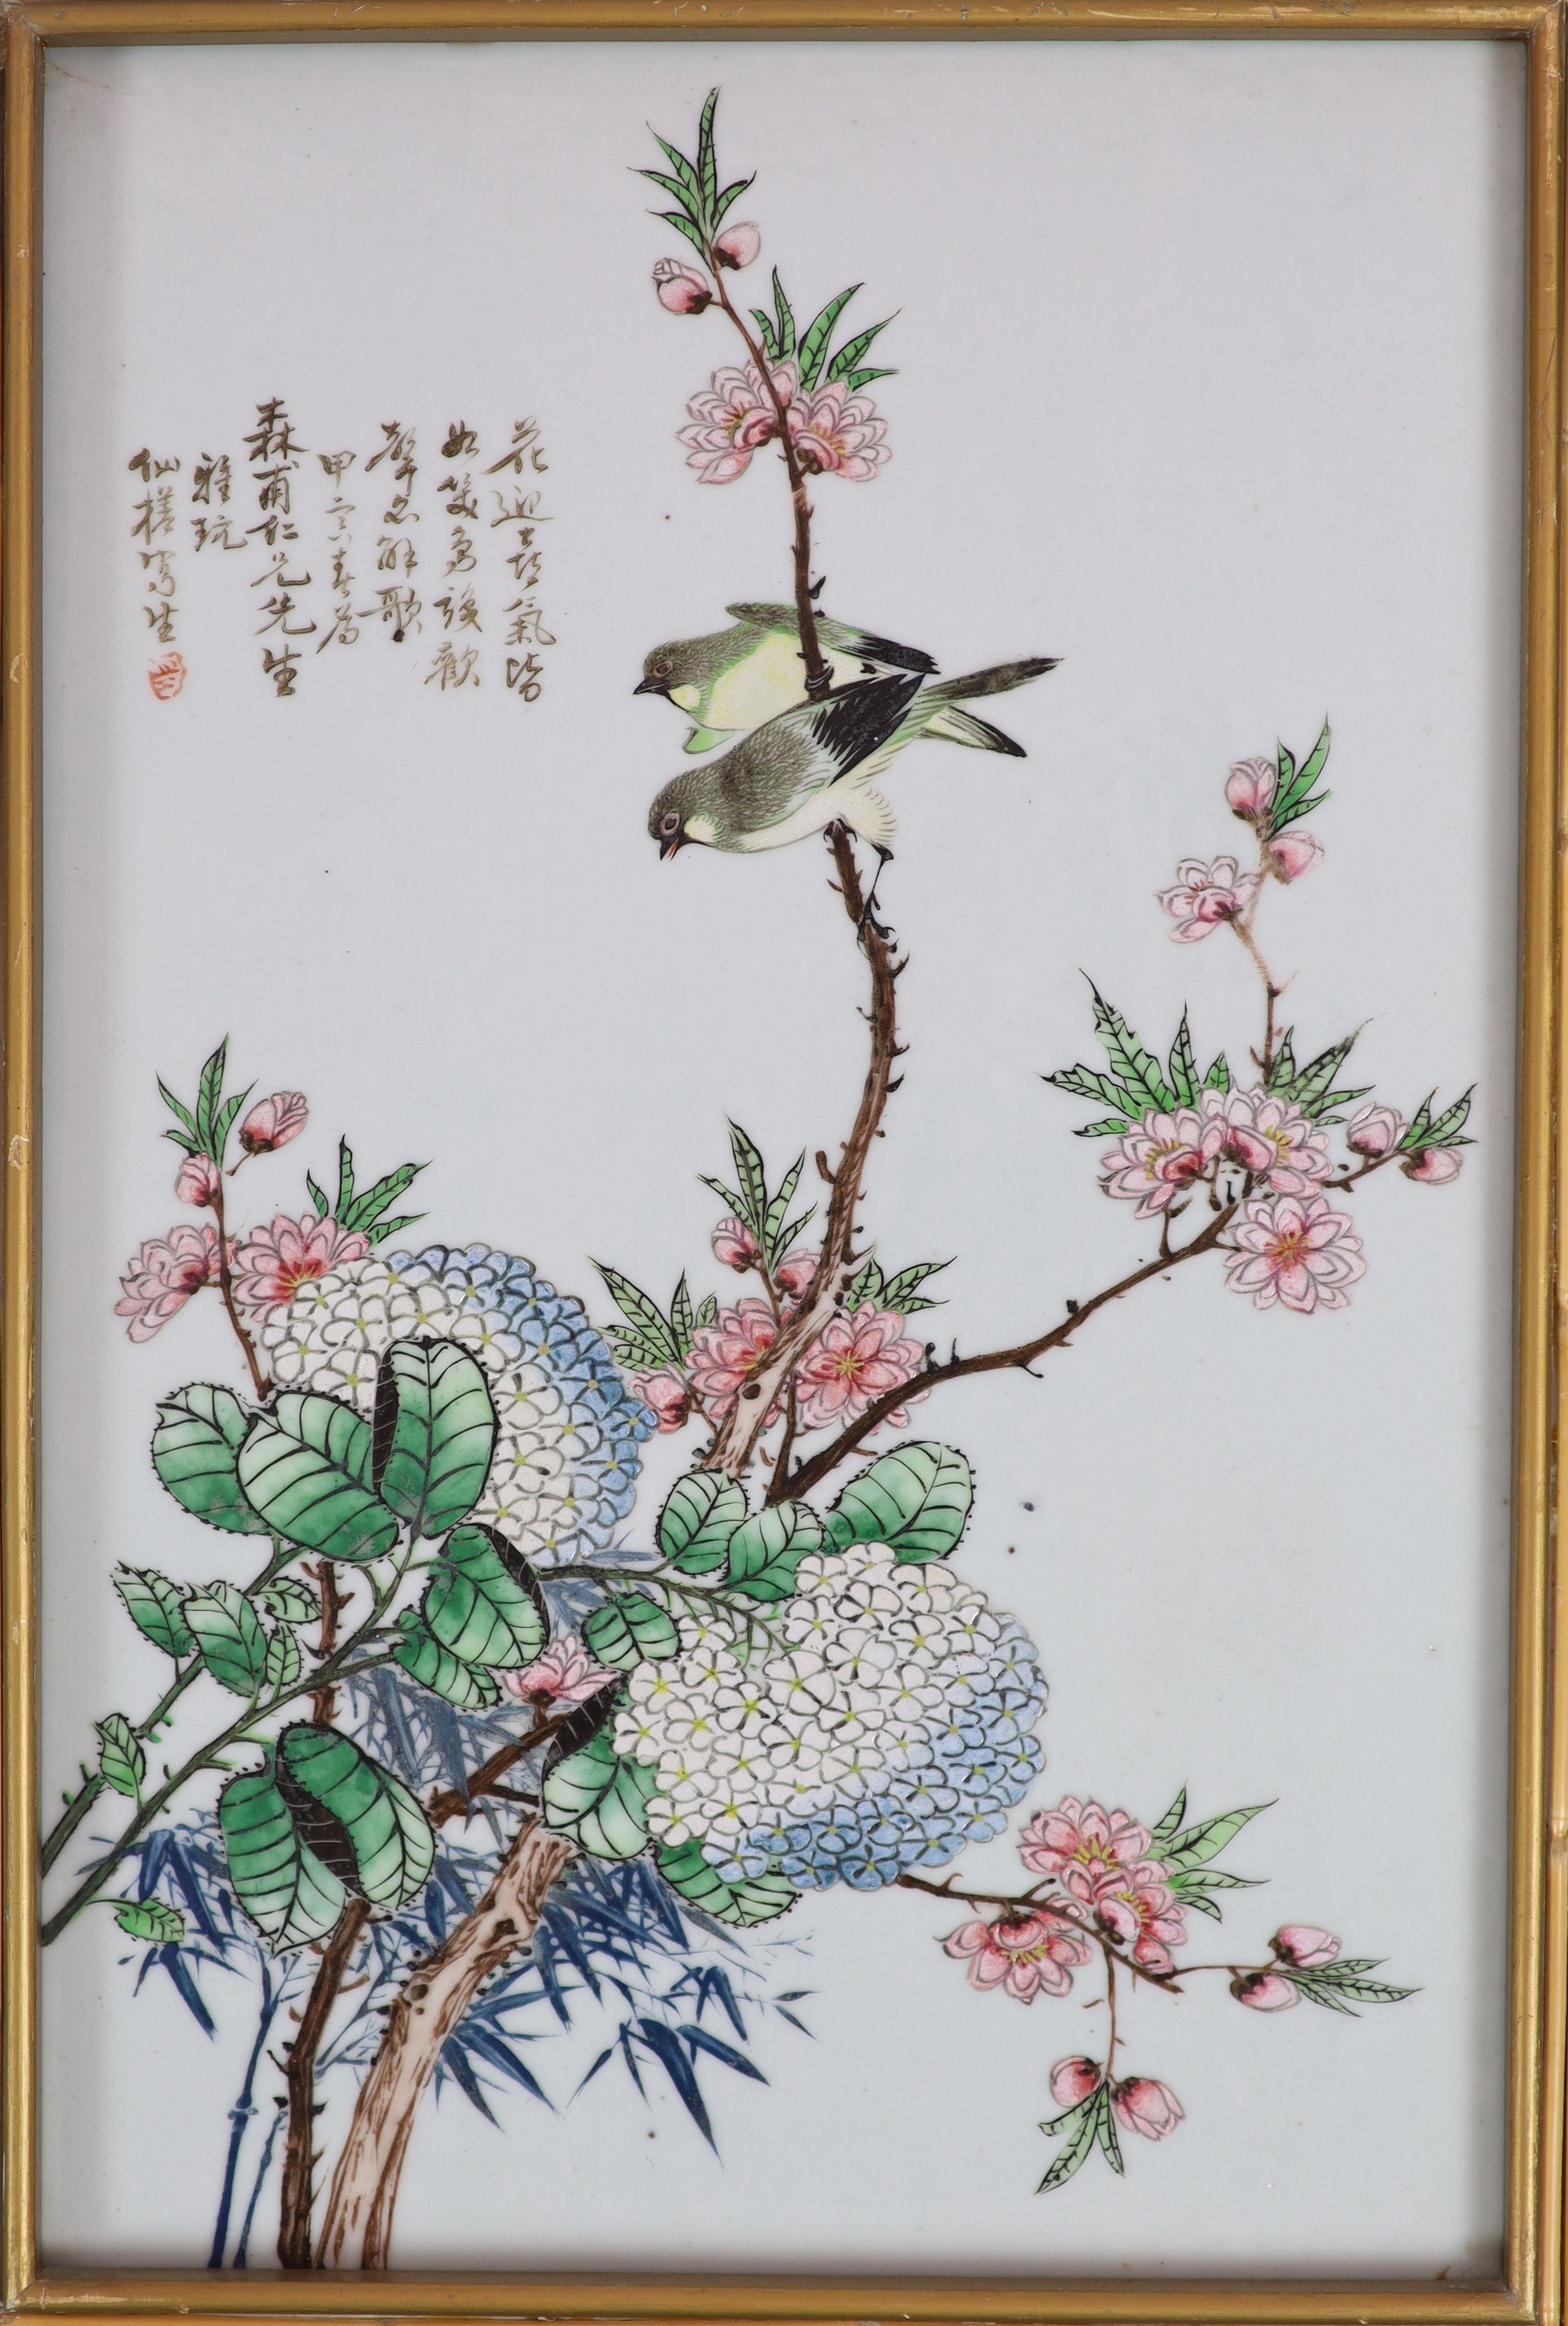 花迎喜氣皆
如笑鳥識歡
聲忽解歌
甲寅春為
森甫仁兄先生
雅玩
仙槎寫生